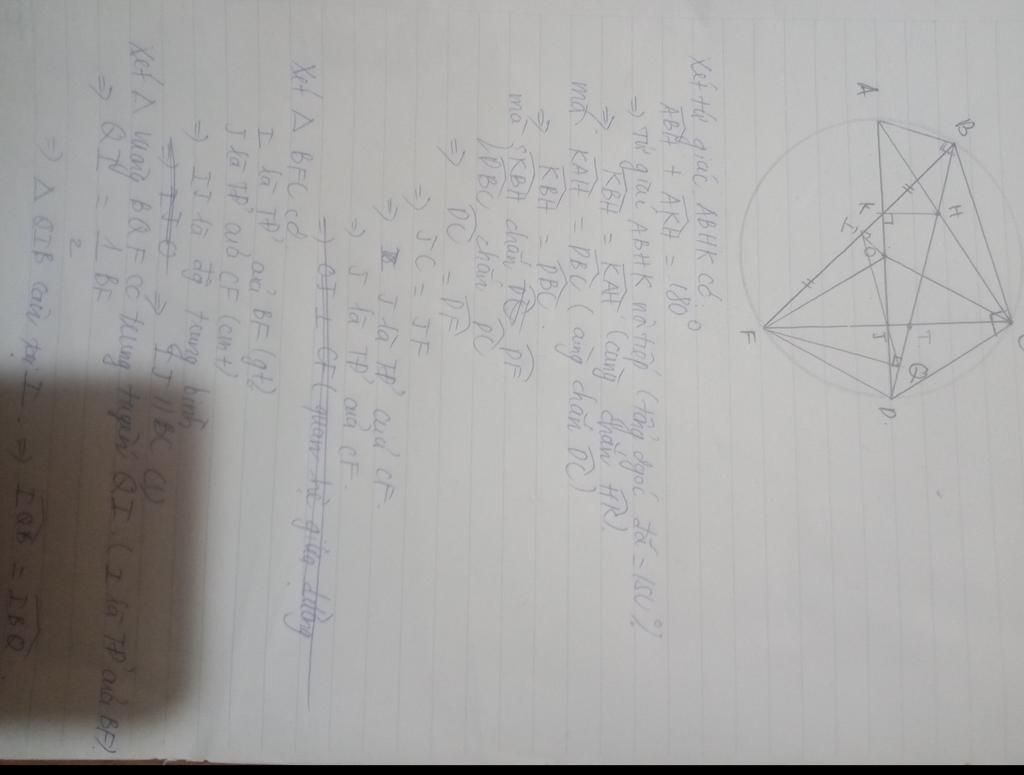 A
B
K
H
I
O
F
J
T
Q
D
C
Xét tứ giác ABHK có
ABH + AKH = 180°
=> Tứ giác ABHK nội tiếp (tổng 2 góc đối = 180°)
=> KBH = KAH (cùng chắn HK)
mà KAH = DBC (cùng chắn DC)
=> KBH = DBC
mà KBH chắn DF
DBC chắn DC
=> DC = DF
=> JC = JF
=> J là TĐ của CF.
=> J là TĐ của CF.
Xét △ BFC có
I là TĐ của BF (gt)
J là TĐ của CF (cmt)
=> IJ là đg trung bình
=> IJ // BC (1)
Xét △ vuông BQF có trung tuyến QI (I là TĐ của BF).
=> QI = 1/2 BF
=> △ QIB cân tại I. => IQB = IBQ